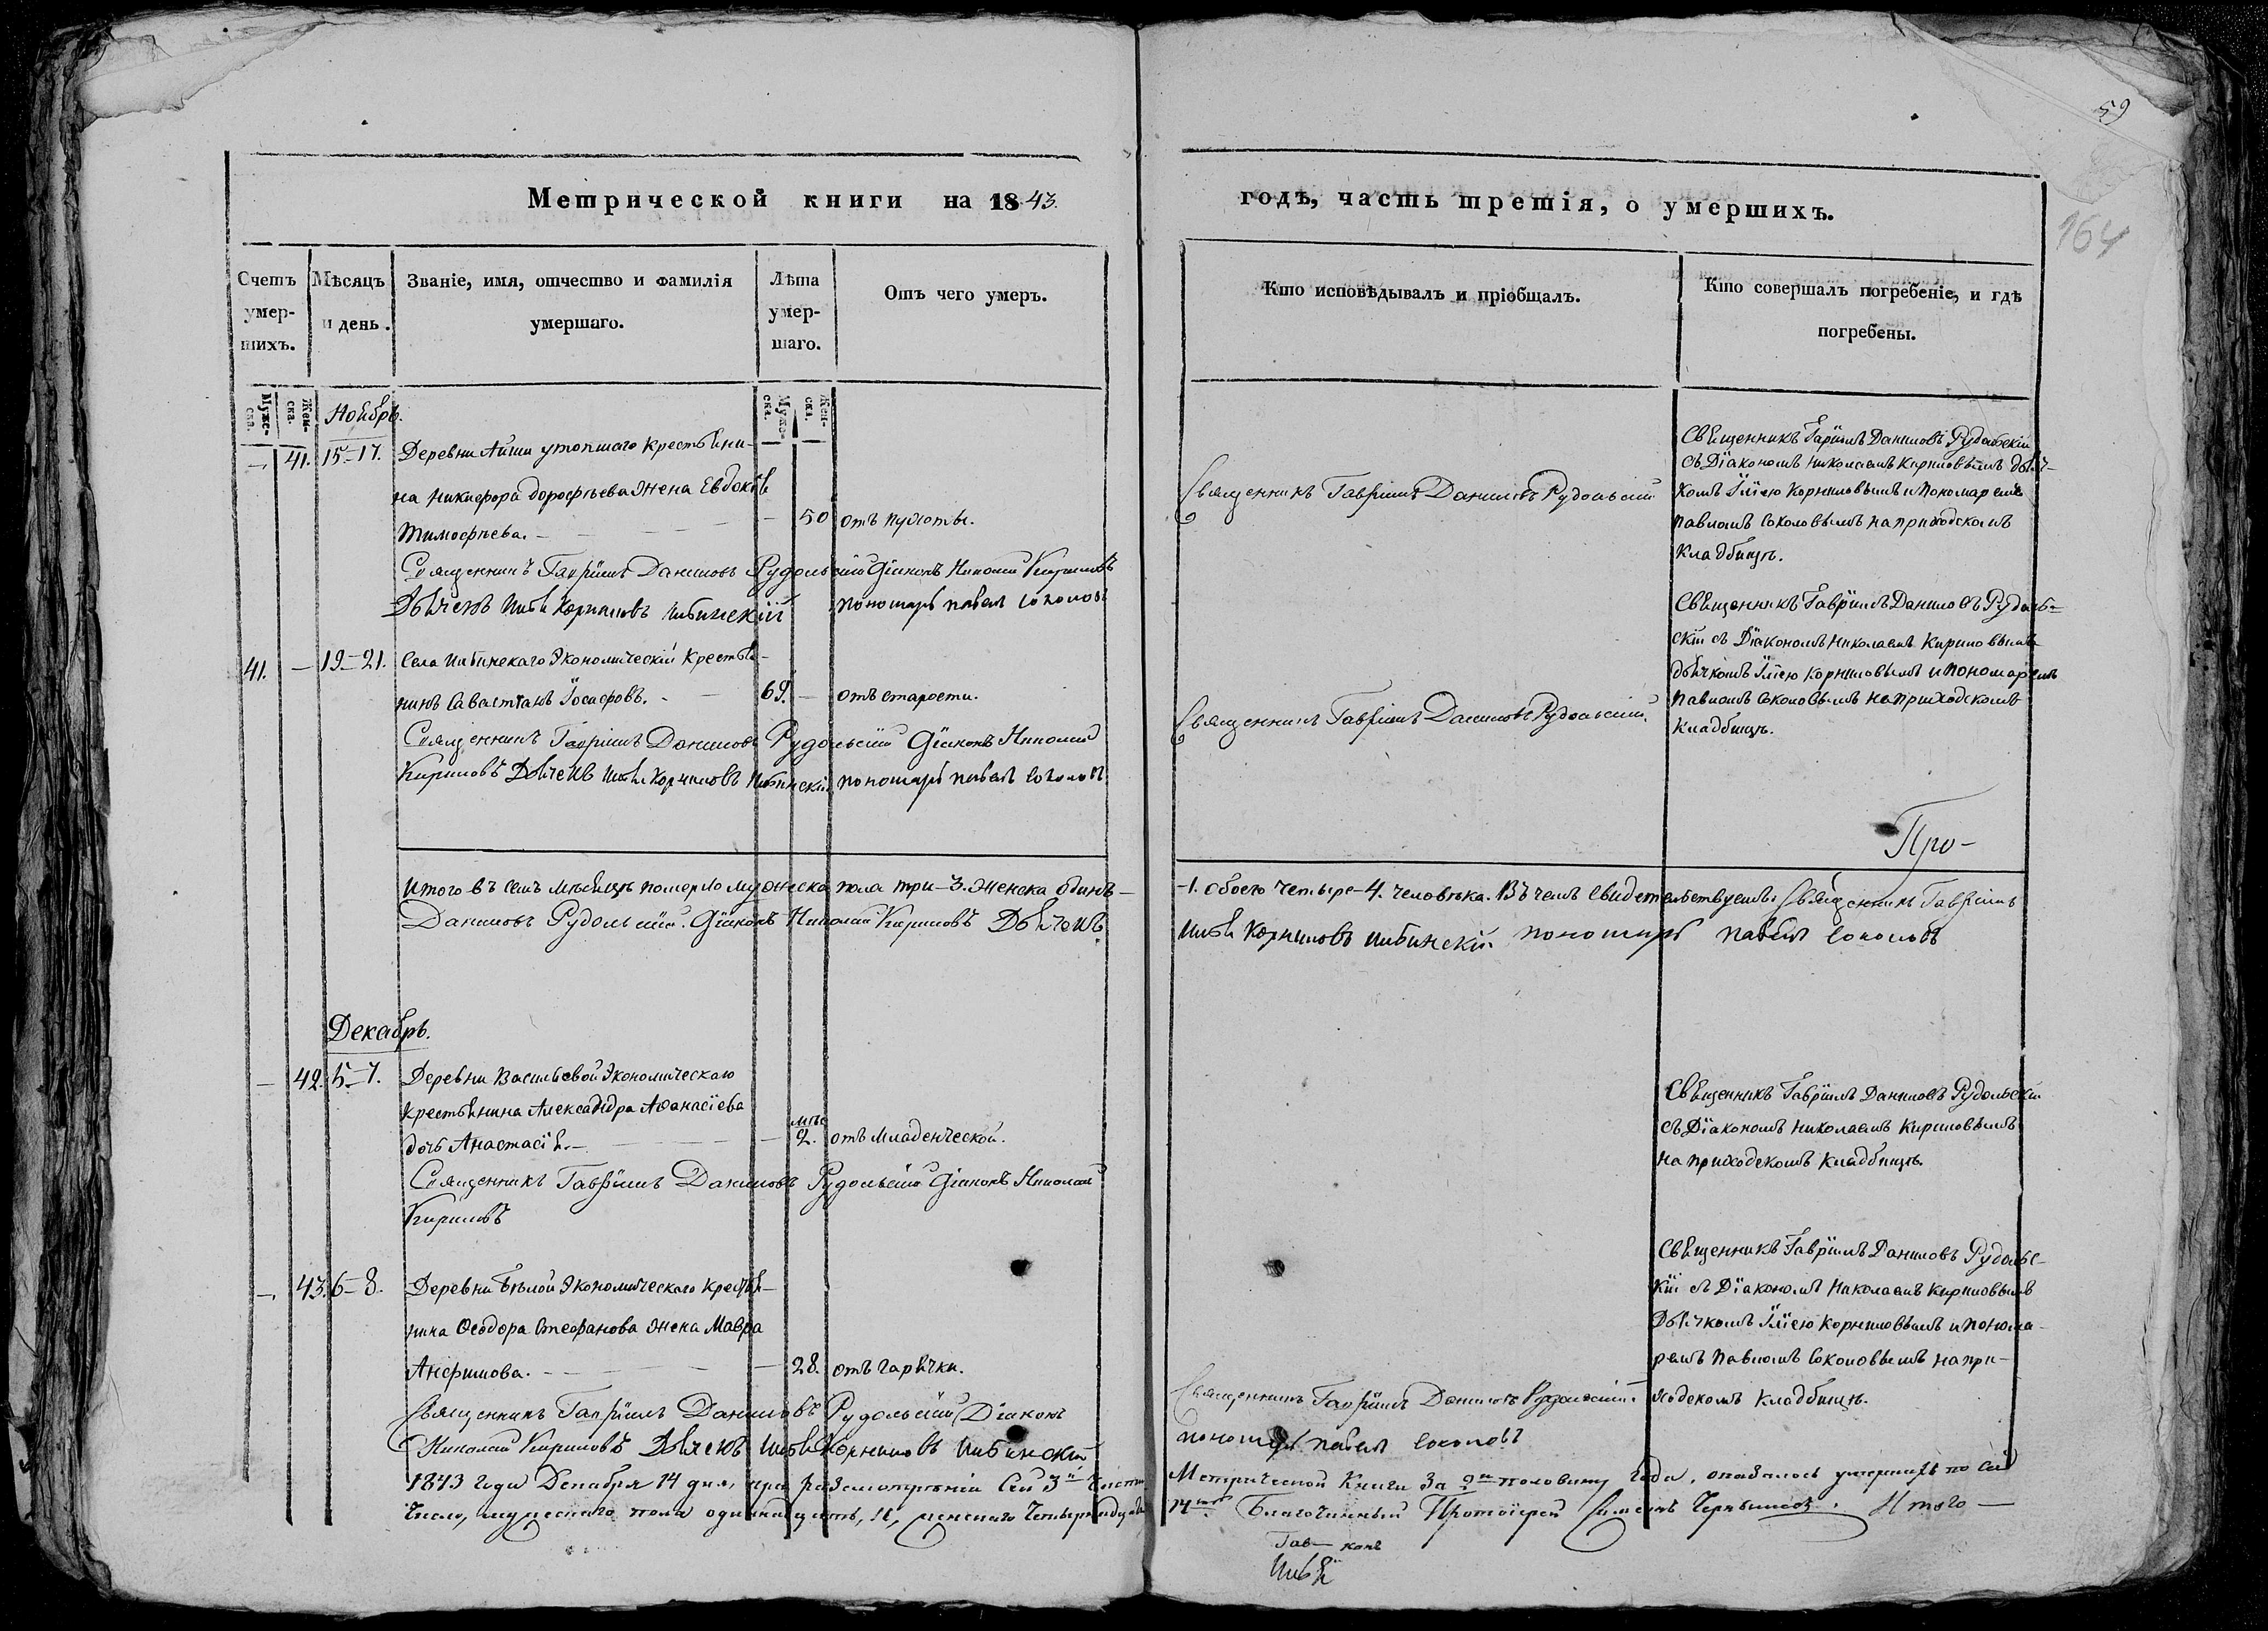 59
164
Метрической книги на 1843.
годъ, часть третія, о умершихъ.
Счетъ умер-шихъ.
Мѣсяцъ и день.
Званіе, имя, отчество и фамилія умершаго.
Лѣта умер-шаго.
Отъ чего умеръ.
Кто исповѣдывалъ и пріобщалъ.
Кто совершалъ погребеніе, и гдѣ погребены.
Муже-ска.
Жен-ска.
Муже-ска.
Жен-ска.
Ноябрь.
— 41. 15–17. Деревни Айши утопшаго крестьяни-
на Никифора Дорофѣева жена Евдокія
Тимофѣева. — 50 отъ
Священникъ Гавріилъ Даниловъ Рудольскій Діаконъ Николай Кириловъ
Дьячекъ Илья Корниловъ Пономарь Павелъ Соколовъ
Священникъ Гавріилъ Даниловъ Рудольскій
Священникъ Гавріилъ Даниловъ Рудольскій
съ Діакономъ Николаемъ Кириловымъ дьяч-
комъ Іліею Корниловымъ и Пономаремъ
Павломъ Соколовымъ на приходскомъ
кладбищѣ.
41. — 19–21. Села Экономическій крестья-
нинъ Савастіанъ Іосифовъ. 69. — отъ старости.
Священникъ Гавріилъ Даниловъ Рудольскій Діаконъ Николай
Кириловъ Дьячекъ Илья Корниловъ Пономарь Павелъ Соколовъ
Священникъ Гавріилъ Даниловъ Рудольскій.
Священникъ Гавріилъ Даниловъ Рудоль-
скій съ Діакономъ Николаемъ Кириловымъ
дьячкомъ Іліею Корниловымъ и Пономаремъ
Павломъ Соколовымъ на приходскомъ
кладбищѣ.
Про-
Итого въ семъ мѣсяцѣ померло мужеска пола три–3. женска одинъ—
–1. обоего четыре–4. человѣка. Въ чемъ свидетельствуемъ: Священникъ Гавріилъ
Даниловъ Рудольскій. Діаконъ Николай Кириловъ Дьячекъ
Илья Корниловъ Пономарь Павелъ Соколовъ
Декабрь.
— 42. 5–7. Деревни Васильевой Экономическаго
крестьянина Александра Афанасіева
дочь Анастасія. — мѣс 2. отъ младенческой.
Священникъ Гавріилъ Даниловъ Рудольскій Діаконъ Николай
Кириловъ
Священникъ Гавріилъ Даниловъ Рудольскій
съ Діакономъ Николаемъ Кириловымъ
на приходскомъ кладбищѣ.
—. 43. 6–8. Деревни Бѣлой Экономическаго крестья-
нина Ѳеодора Стефанова жена Мавра
Анфимова. — 28. отъ горячки.
Священникъ Гавріилъ Даниловъ Рудольскій Діаконъ
Николай Кириловъ Дьячекъ Илья Корниловъ
Священникъ Гавріилъ Даниловъ Рудольскій.
Пономарь Павелъ Соколовъ
Священникъ Гавріилъ Даниловъ Рудольс-
кій съ Діакономъ Николаемъ Кириловымъ
Дьячкомъ Іліею Корниловымъ и Понома-
ремъ Павломъ Соколовымъ на при-
ходскомъ кладбищѣ.
1843 года Декабря 14 дня, при разсмотрѣніи сей 3й части
Метрической Книги за 2ю половину года, оказалось умершихъ по сіе
число, мужескаго пола одиннадцать, 11, женскаго четырнадцать
14ть. Благочинный Протоіерей Симеонъ Итого—
Гав— конъ
Илья